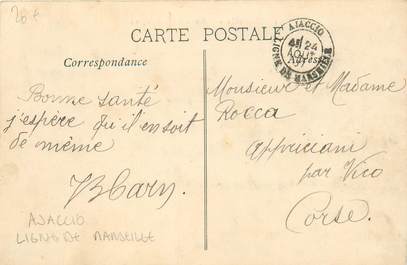 20 €
CARTE POSTALE
AJACCIO
24
AOUT
LIGNE DE MARSEILLE
Correspondance
Adresse
Bonne santé
j'espère qu'il en soit
de même
Monsieur et Madame
Rocca
Appriciani
par Vico
Corse.
AJACCIO
LIGNE DE MARSEILLE